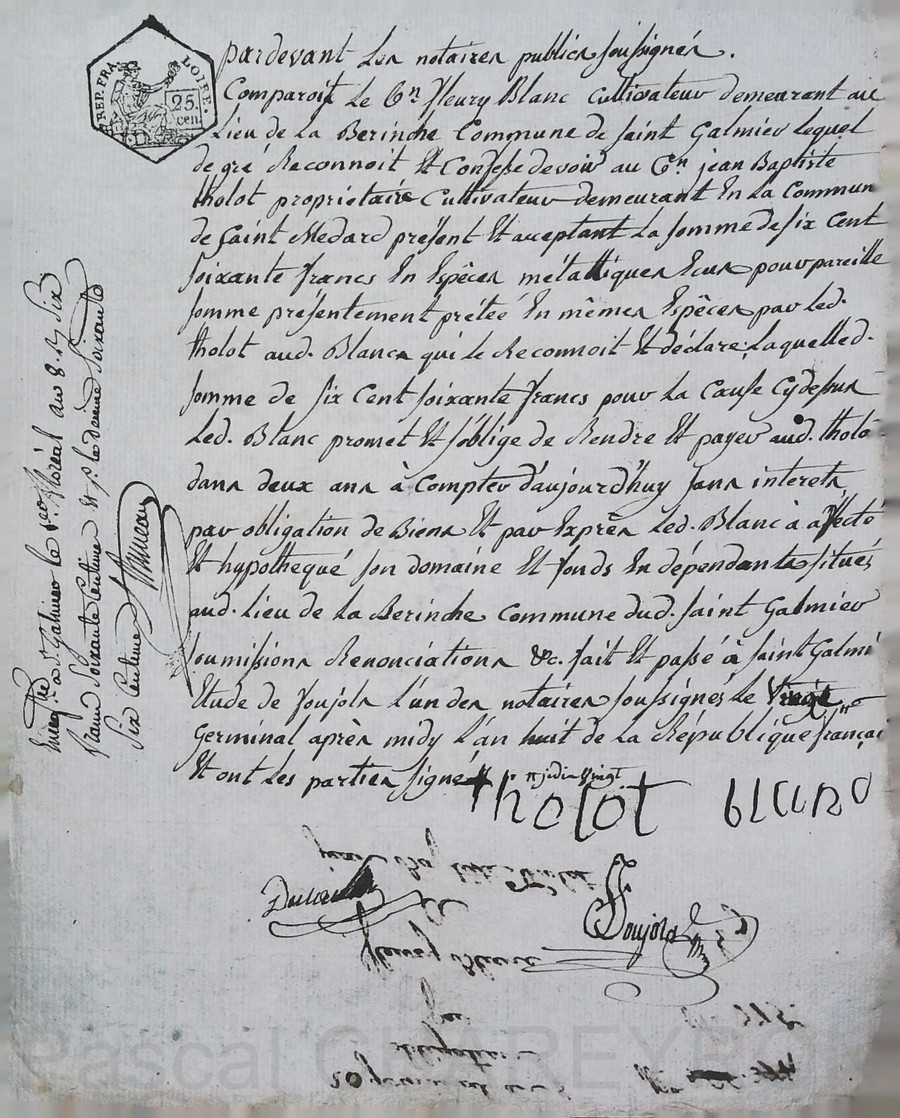 REP. FRA. LOIRE.
25. cen.
pardevant Les notaires publics soussignés .
Comparoit Le C.n fleury Blanc Cultivateur demeurant au
Lieu de La Berinche Commune de Saint Galmier Lequel
de gré Reconnoit Et Confesse devoir au C.n jean Baptiste
tholot propriétaire Cultivateur demeurant En La Commun
de Saint Medard présent Et acceptant La somme de six Cent
soixante francs En Espèces métalliques Ecus pour pareille
somme présentement prétée En mêmes Espèces par led.
tholot aud. Blanc qui le Reconnoit Et déclare; Laquelled.
somme de six Cent soixante francs pour La Cause Cydessus
Led. Blanc promet Et s'oblige de Rendre Et payer aud. tholo
dans deux ans à Compter d'aujourd'huy sans interets
par obligation de Biens Et par Exprès Led. Blanc à affecté
Et hypothequé son domaine Et fonds En dépendants situés
aud. Lieu de La Berinche Commune dud. Saint Galmier
soumissions Renonciations &c. fait Et passé à Saint Galmi
Etude de Soujols L'un des notaires soussignés Le
Germinal après midy L'an huit de La République françai
Et ont Les parties signé
tholot blanc
Soujols
Enreg.tré a S.t galmier le floréal an 8. R. Six
francs Soixante Centimes et p.r le dixième Soixante
Six Centimes
jean Bap tiste tholot
a
fleury Blanc
20 germinal an 8